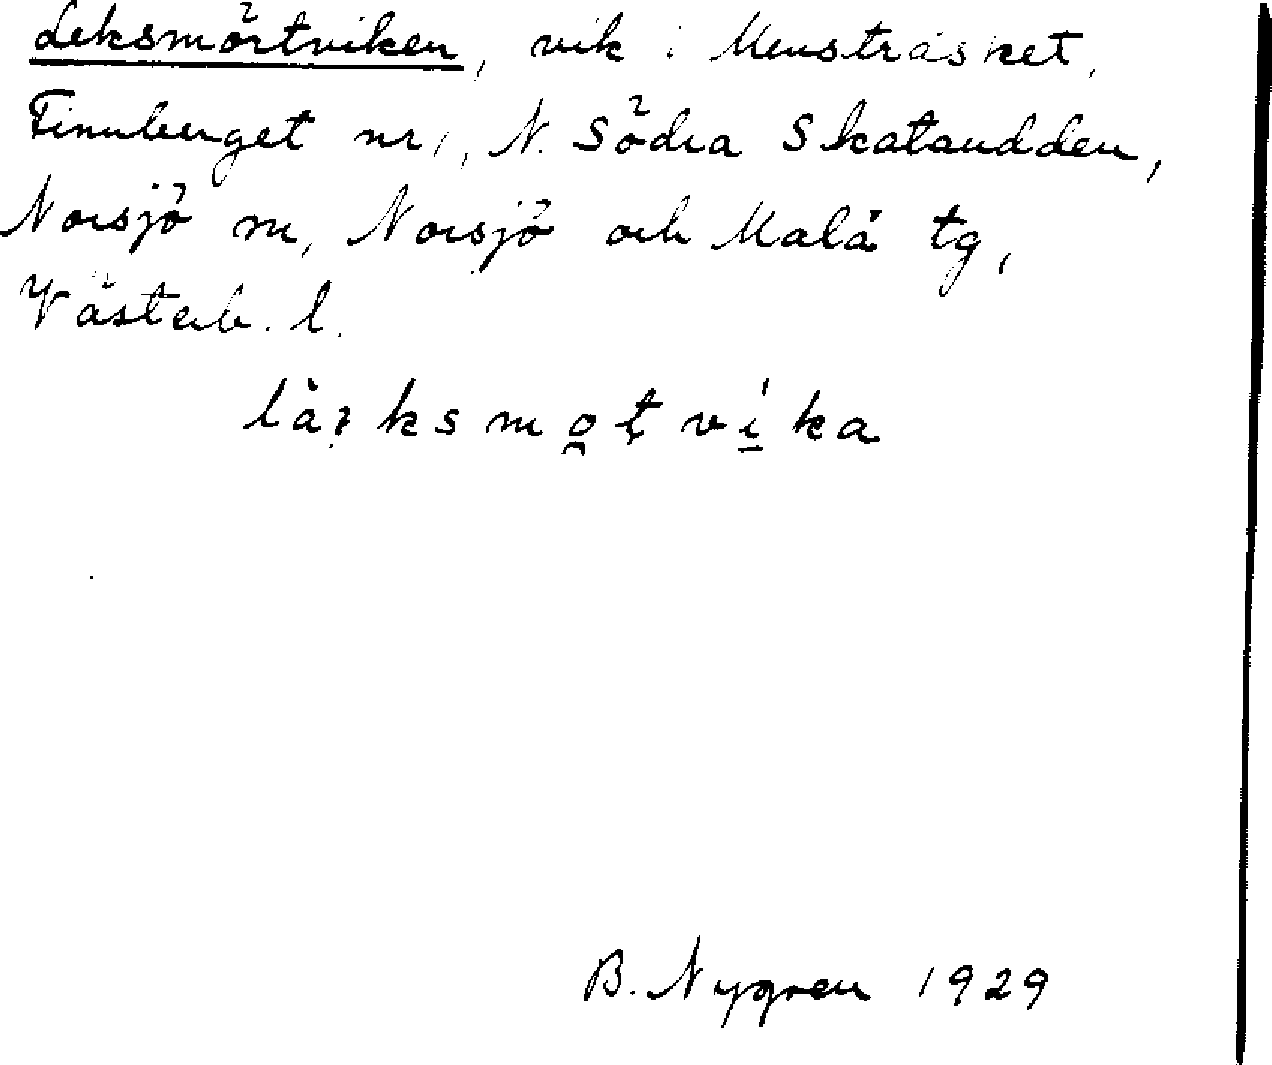 Leksmörtviken, vik i Menträsket,
Finnberget nr 1, N. Södra Skatanudden,
Norsjö sn, Norsjö och Malå tg,
Västerb. l.
B. Nygren 1929